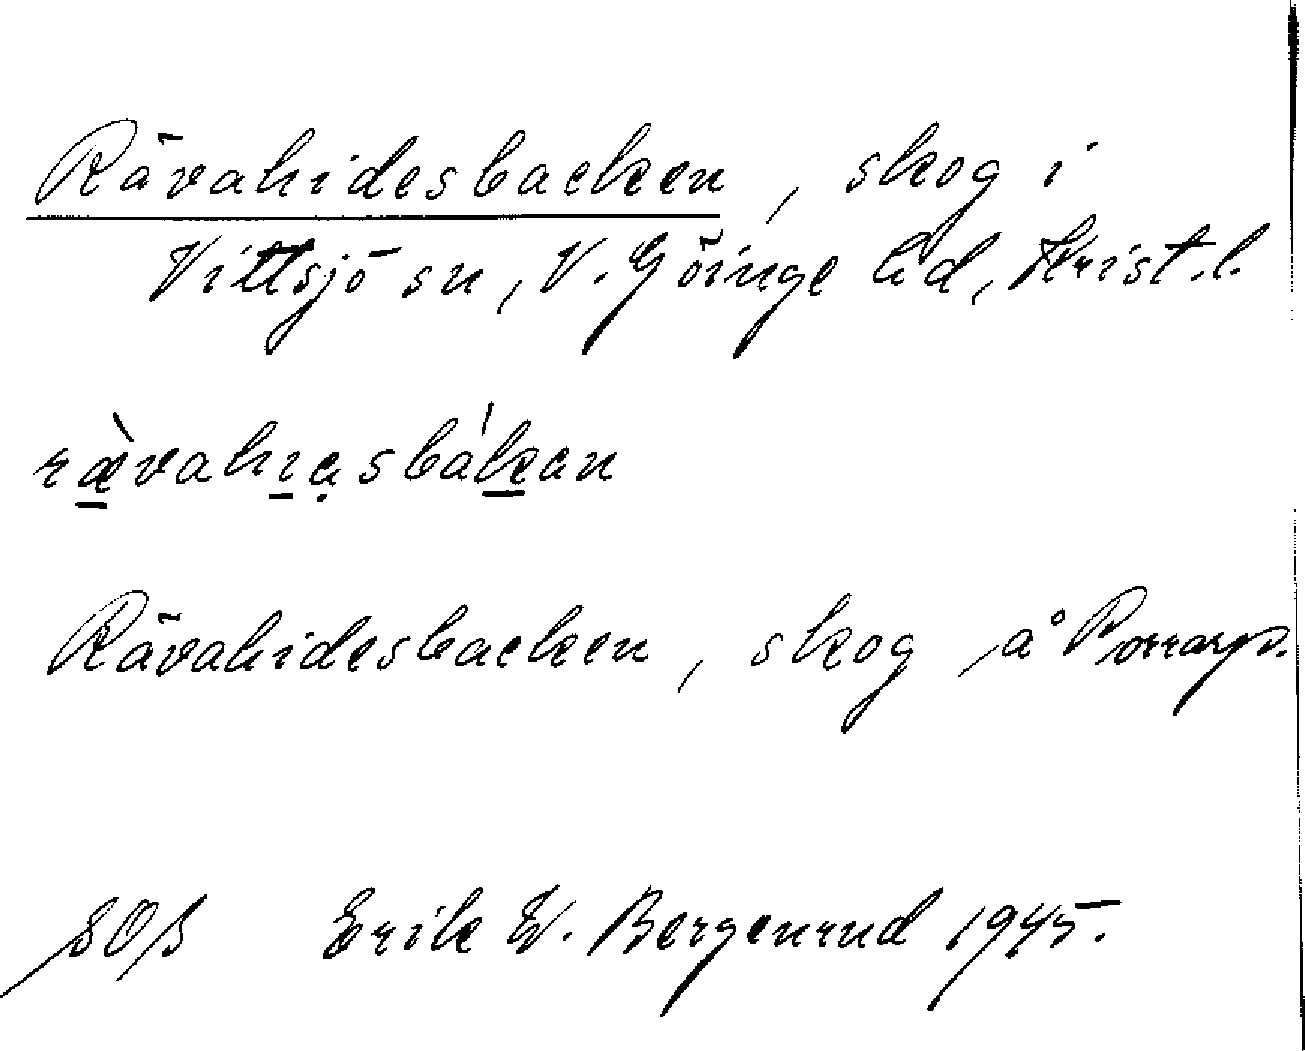 Rävahidesbacken, skog i
Vittsjö sn, V. Göinge hd, Krist. l.
rævahıəsbákan
Rävahidesbacken, skog å Porrarp.
Erik W. Bergenrud 1945.